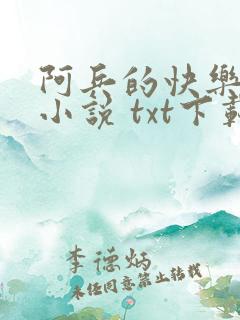 阿兵的快樂
小说 txt下載
李德炳
未经同意禁止转载